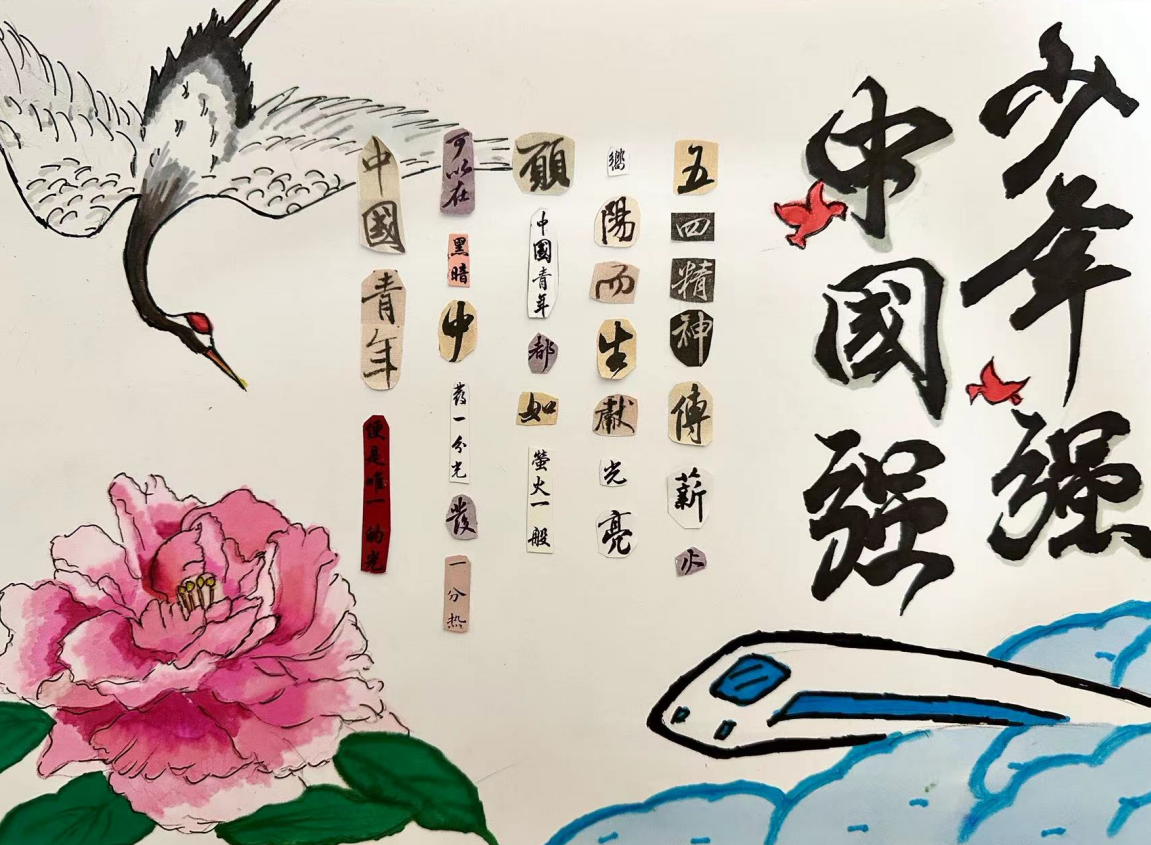 少年强
中國强
五四精神傳薪火
嚮陽而生獻光亮
願中國青年都如螢火一般
可以在黑暗中發一分光發一分热
中國青年便是唯一的光